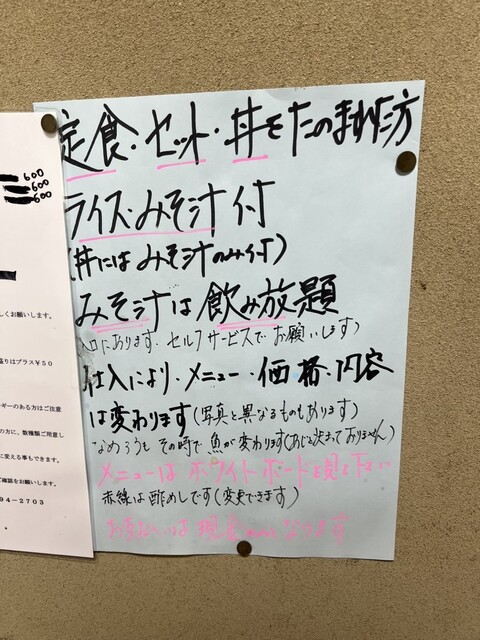 600
600
600
しくお願いします。
盛りはプラス¥50
ギーのある方はご注意
の方に、数種類ご用意し
に変える事もできます。
ご確認をお願いします。
94-2703
定食・セット・丼をたのまれた方
ライス・みそ汁付
(丼にはみそ汁のみ付)
みそ汁は飲み放題
入口にあります。セルフサービスでお願いします)
仕入により・メニュー・価格・内容
は変わります(写真と異なるものもあります)
なめろうもその時で魚が変わります(あじと決まっておりません)
メニューはホワイトボードを見て下さい
赤線は酢めしです(変更できます)
お支払いは現金 なります